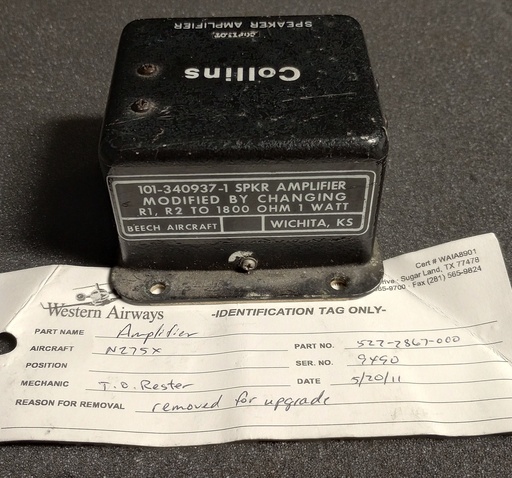 SPEAKER AMPLIFIER
COPILOT
Collins
101-340937-1 SPKR AMPLIFIER
MODIFIED BY CHANGING
R1, R2 TO 1800 OHM 1 WATT
BEECH AIRCRAFT WICHITA, KS
Cert # WAIA8901
Sugar Land, TX 77478
Fax (281) 565-9824
Western Airways -IDENTIFICATION TAG ONLY-
PART NAME Amplifier PART NO. 522-2867-000
AIRCRAFT N275X SER. NO. 9490
POSITION DATE 5/20/11
MECHANIC J.D. Rester
REASON FOR REMOVAL removed for upgrade